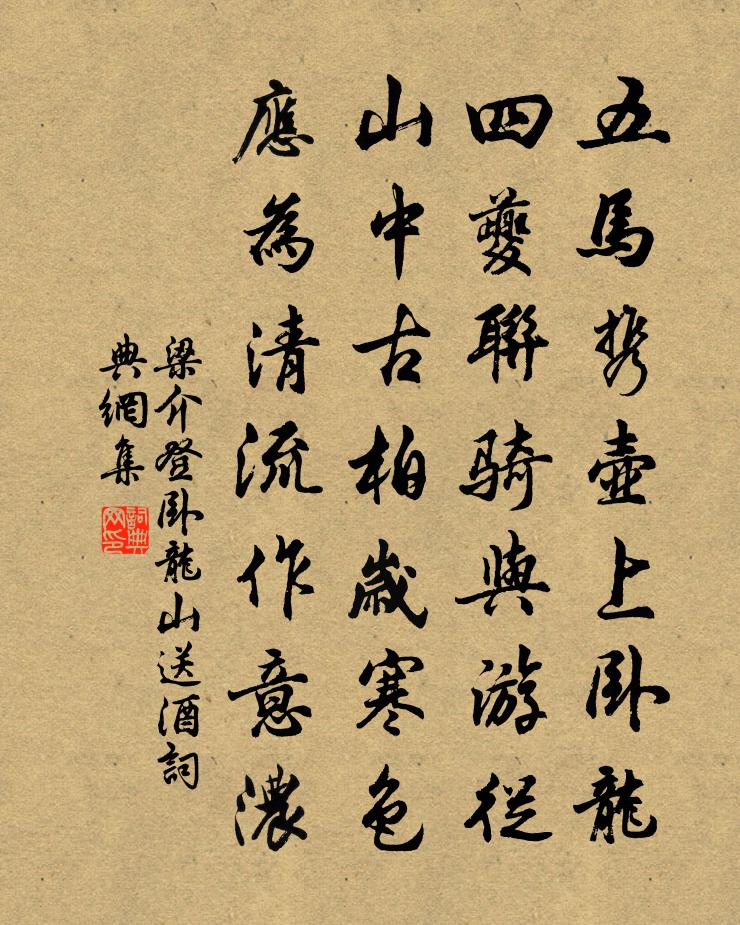 五馬携壺上卧龍
四夔聯騎與游從
山中古柏歲寒色
應為清流作意濃
梁介登卧龍山送酒詞
典網集
詞典網印